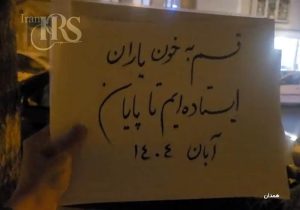 Iran
IRS
قسم به خون یاران
ایستاده ایم تا پایان
آبان ۱۴۰۴
همدان